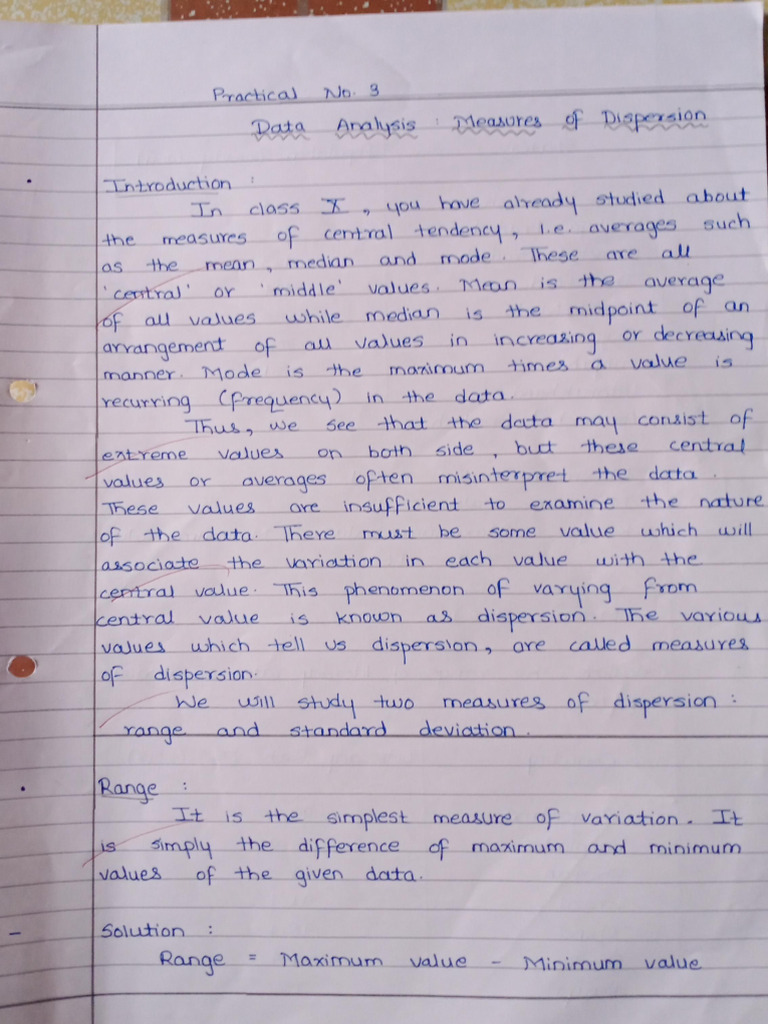 Practical No. 3
Data Analysis : Measures of Dispersion
Introduction :
In class X, you have already studied about
the measures of central tendency, i.e. averages such
as the mean, median and mode. These are all
'central' or 'middle' values. Mean is the average
of all values while median is the midpoint of an
arrangement of all values in increasing or decreasing
manner. Mode is the maximum times a value is
recurring (frequency) in the data.
Thus, we see that the data may consist of
extreme values on both side, but these central
values or averages often misinterpret the data.
These values are insufficient to examine the nature
of the data. There must be some value which will
associate the variation in each value with the
central value. This phenomenon of varying from
central value is known as dispersion. The various
values which tell us dispersion, are called measures
of dispersion.
We will study two measures of dispersion :
range and standard deviation.
Range :
It is the simplest measure of variation. It
is simply the difference of maximum and minimum
values of the given data.
- Solution :
Range = Maximum value - Minimum value